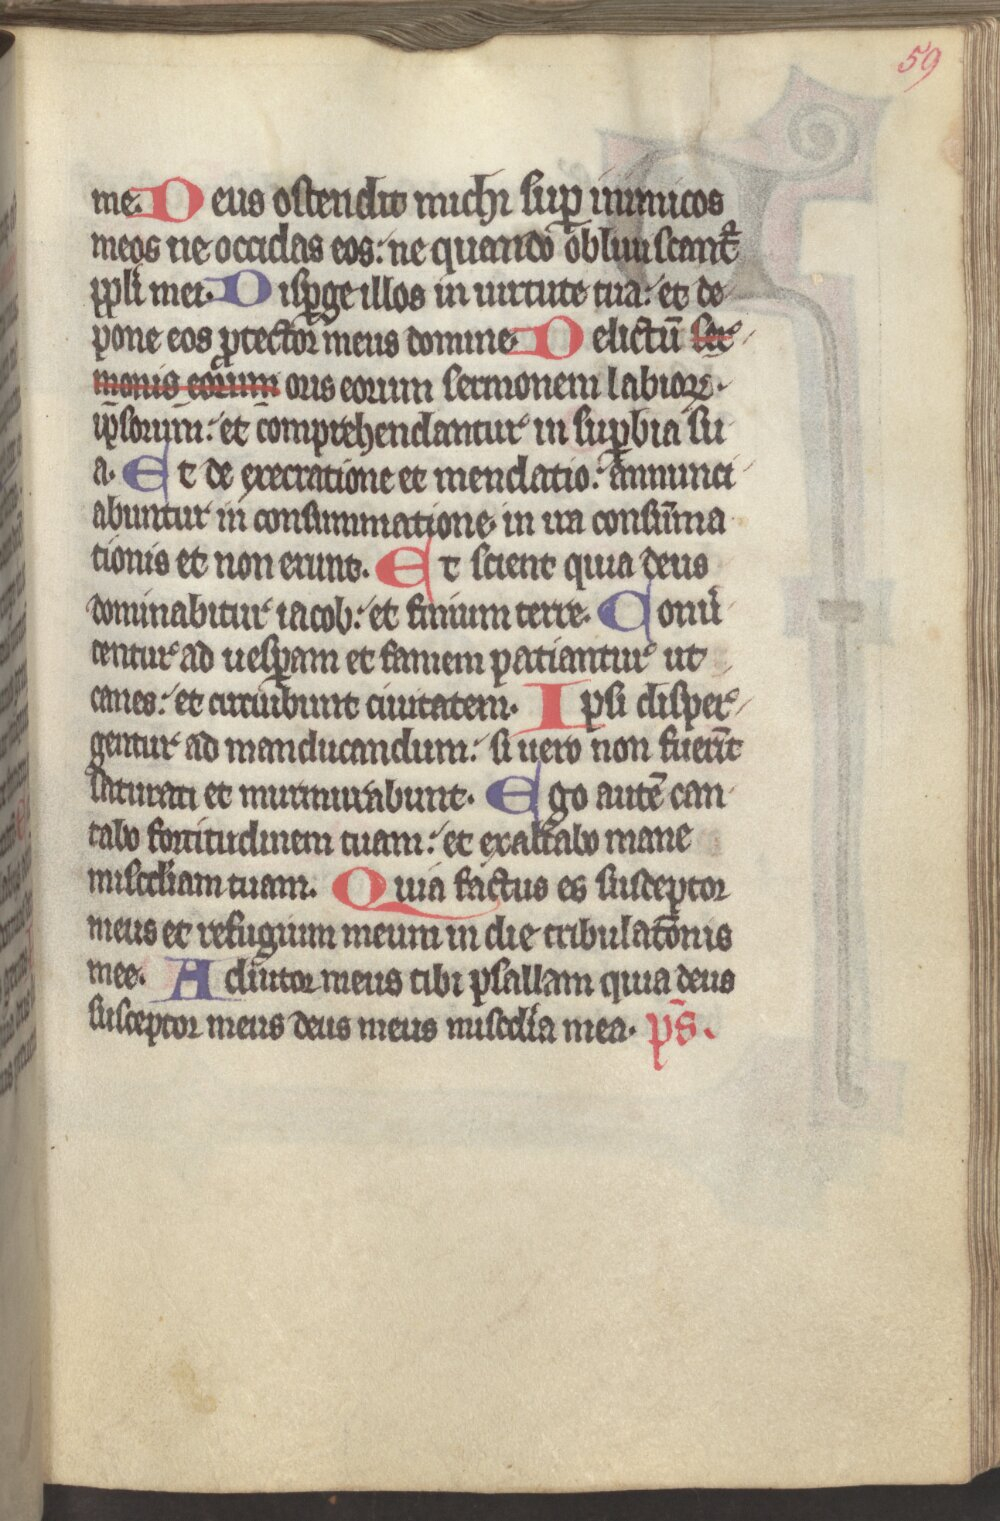 59
me. Deus ostendit michi sup̲ inimicos
meos ne occidas eos: ne quando obliuiscant᷑
pp̲li mei. Disp̲ge illos in uirtute tua: et de
pone eos p̲tector meus domine. Delictū ser
monis eorum oris eorum sermonem labioꝝ
ip̄sorum: et comprehendantur in sup̲bia su
a. Et de execratione et mendatio: annunci
abuntur in consummatione. in ira consūma
tionis et non erunt. Et scient quia deus
dominabitur iacob: et finium terre. Conu͛
tentur ad uesp̲am et famem patiantur ut
canes: et circuibunt ciuitatem. Ipsi disper
gentur ad manducandum: si uero non fuerīt
saturati et murmurabunt. Ego autē can
tabo fortitudinem tuam: et exaltabo mane
misc̄diam tuam. Quia factus es susceptor
meus et refugium meum in die tribulat̄onis
mee. Adiutor meus tibi psallam quia deus
susceptor meus deus meus misc̄dia mea. p̄s.